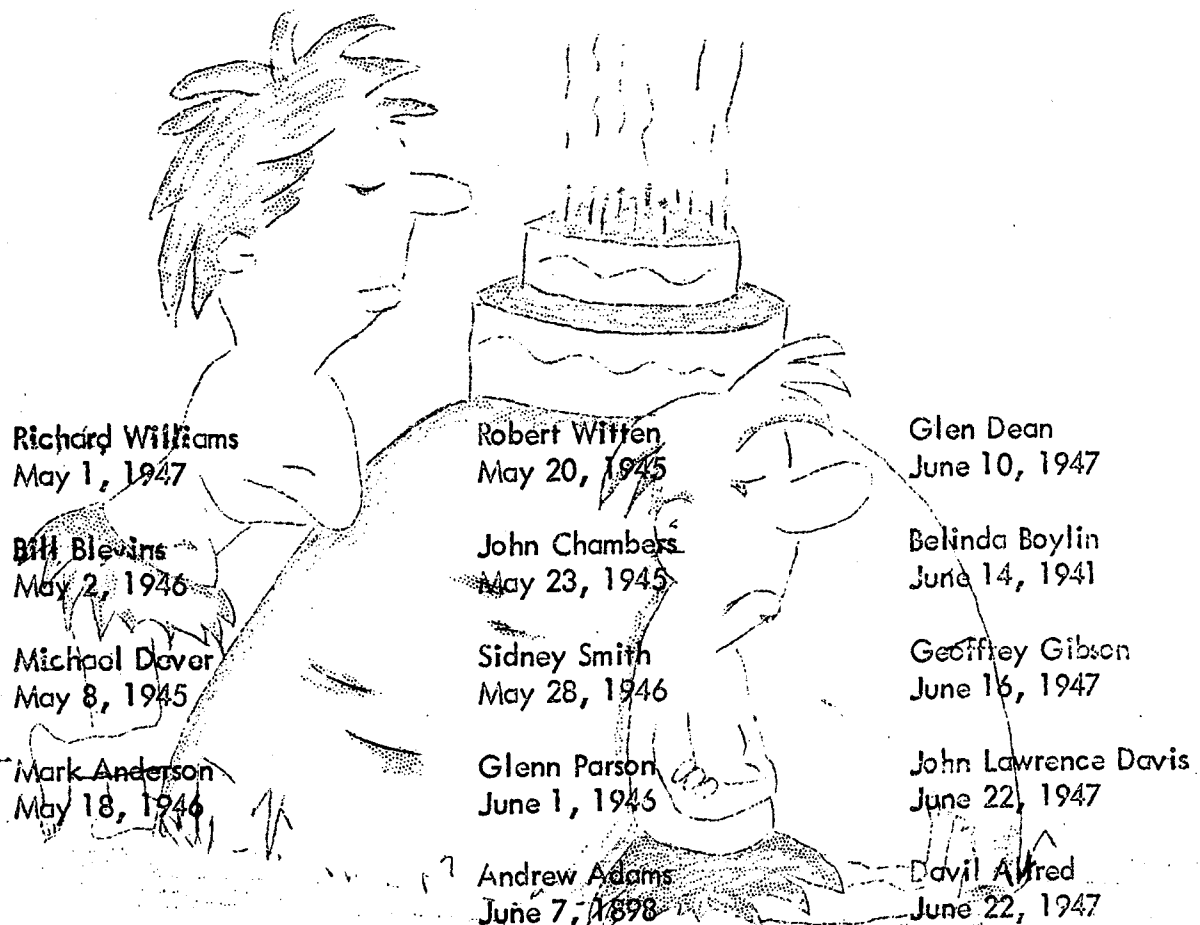 Richard Williams
May 1, 1947
Bill Blevins
May 2, 1946
Michael Dever
May 8, 1945
Mark Anderson
May 18, 1946
Robert Witten
May 20, 1945
John Chambers
May 23, 1945
Sidney Smith
May 28, 1946
Glenn Parson
June 1, 1946
Andrew Adams
June 7, 1898
Glen Dean
June 10, 1947
Belinda Boylin
June 14, 1941
Geoffrey Gibson
June 16, 1947
John Lawrence Davis
June 22, 1947
David Alfred
June 22, 1947